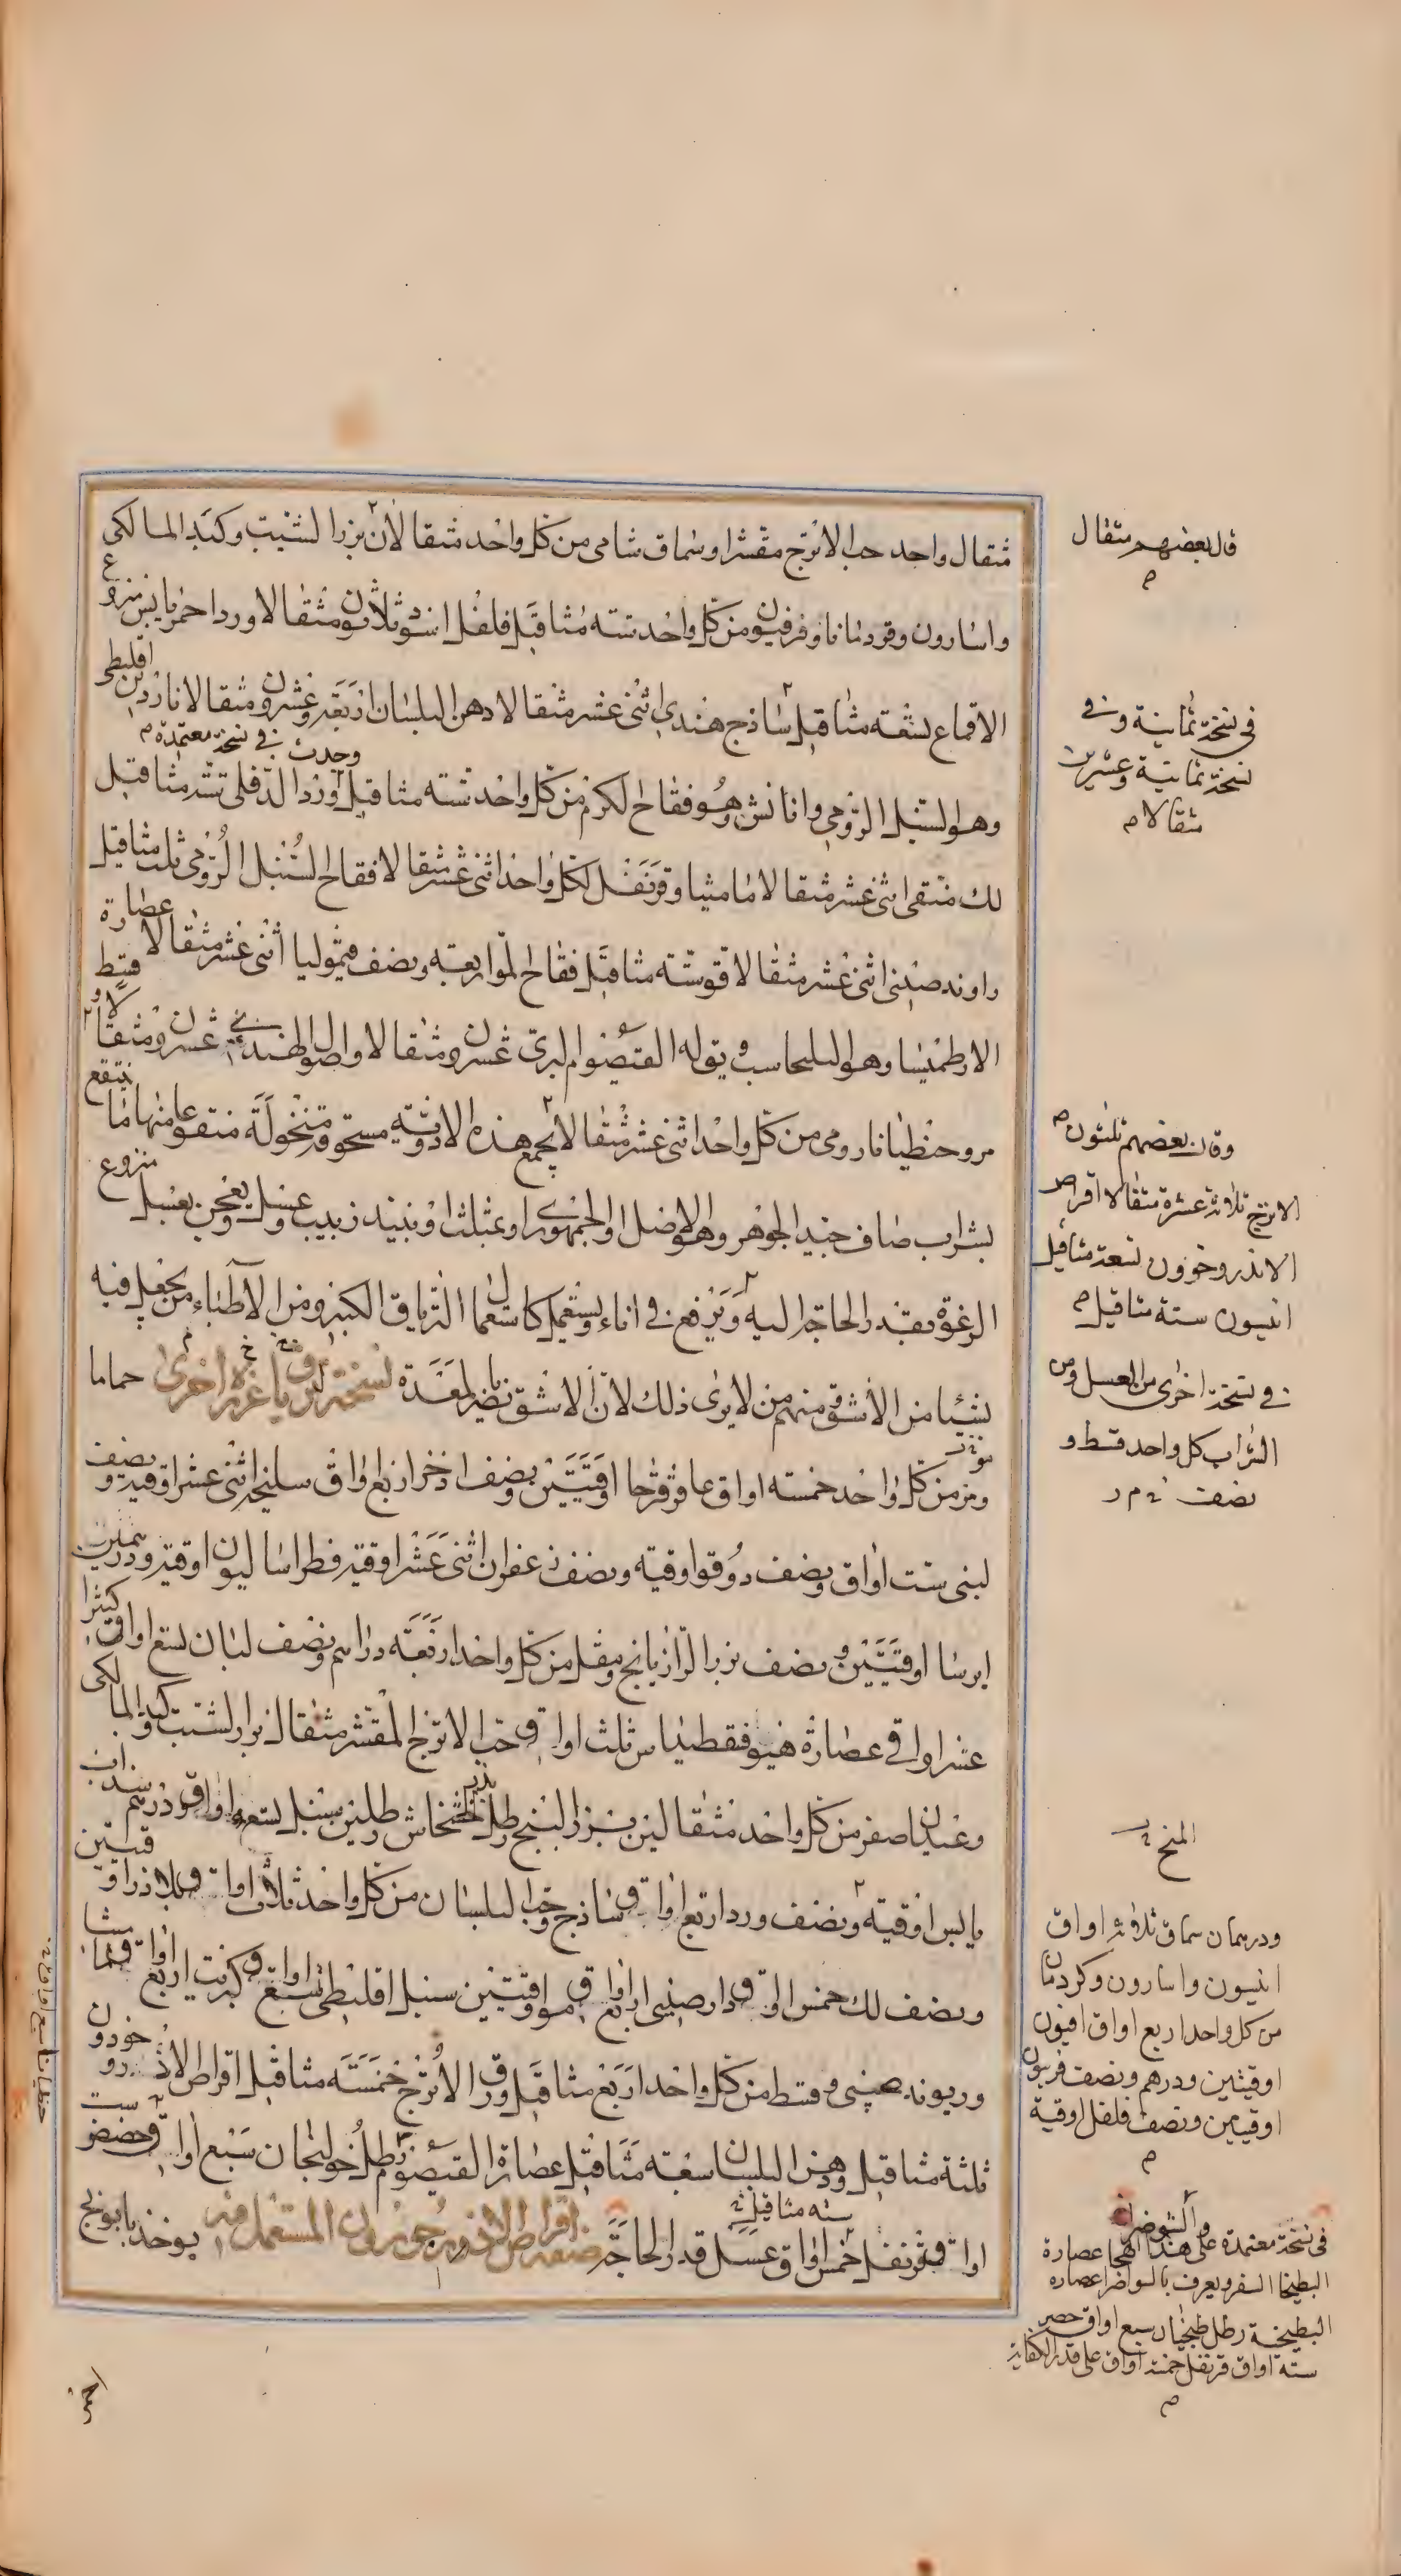 مثقال واحد حب الاترج مقشرا وسماق شامي من كل واحد مثقالان بزر الشبت وكبد المالكى
واسارون وقردمانا وفرفيون من كل واحد ستة مثاقيل فلفل اسود ثلاثون مثقالا ورد احمر يابس منزوع
الاقماع تسعة مثاقيل ساذج هندي اثنى عشر مثقالا دهن البلسان اربعة وعشرون مثقالا ناردين اقليطى
وجدت فى نسخة معتمدة م
وهو السنبل الرومي وانانش وهو فقاح الكرم من كل واحد ستة مثاقيل ورد الدفلى ستة مثاقيل
لك منقى اثنى عشر مثقالا ماميثا وقرنفل لكل واحد اثنى عشر مثقالا فقاح السنبل الرومي ثلث مثاقيل
راوند صيني اثنى عشر مثقالا قو ستة مثاقيل فقاح المو اربعة ونصف قيموليا اثنى عشر مثقالا عصارة
الارطميسا وهو البلنجاسب ويقوله القيصوم البرى عشرون مثقالا واصول الهندبى عشرون مثقالا وقسط
مر وجنطيانا رومي من كل واحد اثنى عشر مثقالا يجمع هذه الادوية مسحوقة منخولة منقوعا منها ما ينقع
بشراب صاف جيد الجوهر وهو الافضل او الجمهوري او بمثلث او نبيذ زبيب وعسل ويعجن بعسل منزوع
الرغوة بقدر الحاجة اليه ويرفع في اناء ويستعمل كاستعمال الترياق الكبير ومن الاطباء من يجعل فيه
شيئا من الاشق ومنهم من لا يرى ذلك لان الاشق يضر بالمعدة نسخة ترياق عزرة اخرى حماما
ومر من كل واحد خمسة اواق عاقرقرحا اوقيتين ونصف اذخر اربع اواق سليخة اثنى عشر اوقية ونصف
لبنى ست اواق ونصف دوقو اوقية ونصف زعفران اثنى عشر اوقية فطراساليون اوقية ودرهمين
ايرسا اوقيتين ونصف بزر الرازيانج ومقل من كل واحد اربعة دراهم ونصف لبان تسع اواق كثيرا
عشر اواقي عصارة هيوفقطيداس ثلث اواق حب الاترج المقشر مثقال بزر الشبت وكبد المالكى
وعيدان اصفر من كل واحد مثقالين بزر البنج رطل خشخاش رطلين سنبل تسع اواق ودرهم سذاب
يابس اوقية ونصف ورد اربع اواق ساذج وحب البلسان من كل واحد ثلاث اواق بلاذر اوقيتين
ونصف لك خمس اواق دارصينى اربع اواق مو اوقيتين سنبل اقليطى تسع اواق كبريت اربع اواق ماميثا
وريوند صيني وقسط من كل واحد اربع مثاقيل ورق الاترج خمسة مثاقيل اقراص الاندروخورون
ثلثة مثاقيل ودهن البلسان سبعة مثاقيل عصارة القيصوم رطل خولنجان سبع اواق حضض ست
ستة مثاقيل
اواق قرنفل خمس اواق عسل قدر الحاجة صفة اقراص الاندروخورون المستعمل فيه يوخذ بابونج
قال بعضهم مثقال
م
فى نسخة ثمانية وفى
نسخة ثمانية وعشرين
مثقالا م
وقال بعضهم ثلثون م
الاترج ثلاثة عشرة مثقالا اقراص
الاندروخورون تسعة مثاقيل
انيسون ستة مثاقيل م
فى نسخة اخرى من العسل ومن
الشراب كل واحد قسط و
نصف
المنح
ودرهمان سماق ثلاثة اواق
انيسون واسارون وكردمان
من كل واحد اربع اواق افيون
اوقيتين ودرهم ونصف فربيون
اوقيتين ونصف فلفل اوقية
م
فى نسخة معتمدة على هذا الهجا عصارة
البطيخا السفر ويعرف بالسواصر عصاره
البطيخية رطل سبع اواق حضض
سته اواق قرنفل خمسة اواق على قدر الكفاية
م